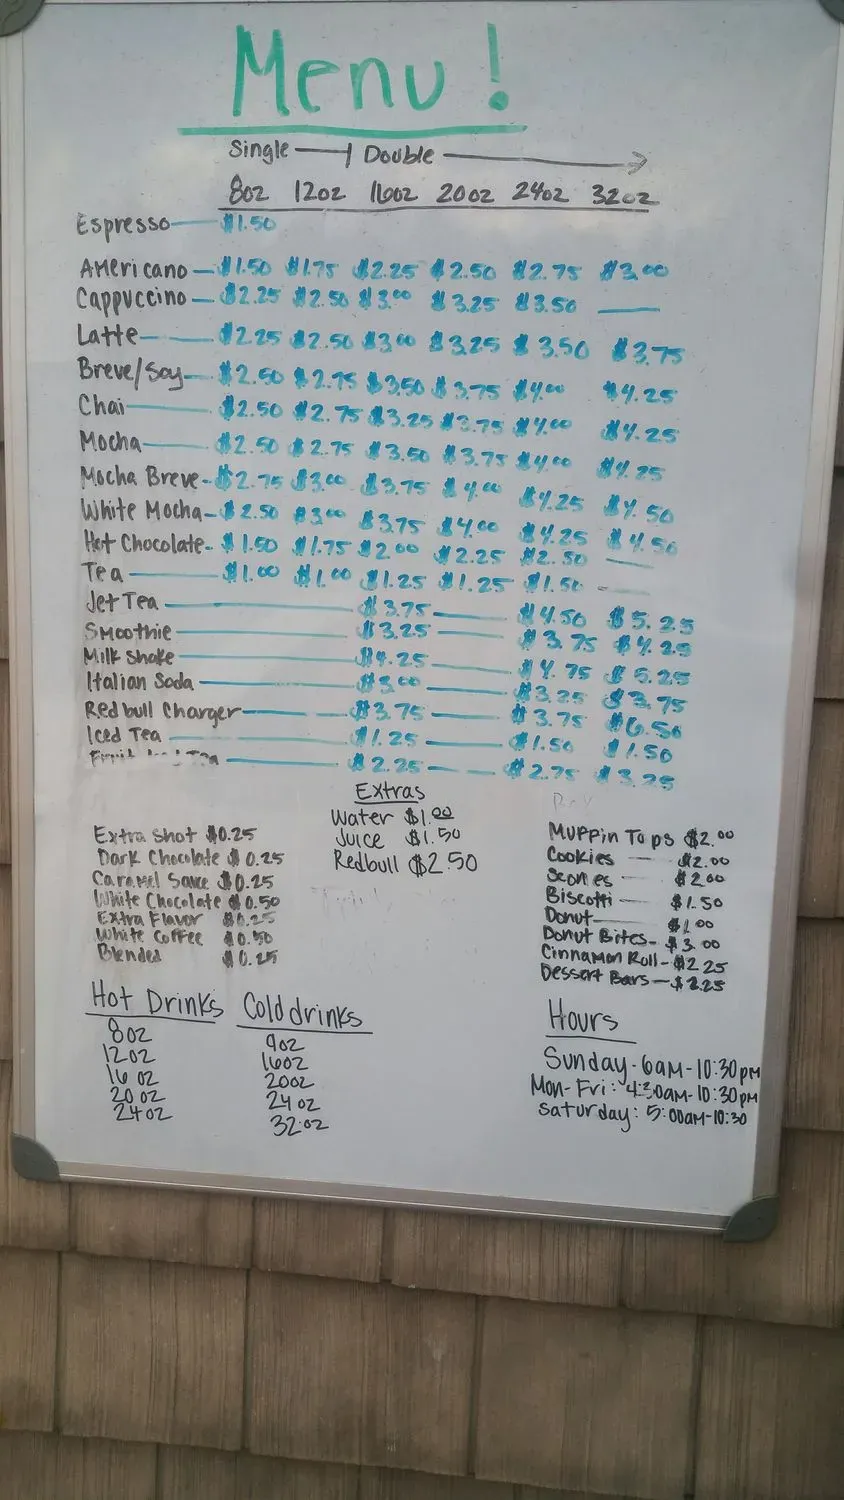 Menu!
Single Double
8oz 12oz 16oz 20oz 24oz 32oz
Espresso $1.50
Americano $1.50 $1.75 $2.25 $2.50 $2.75 $3.00
Cappuccino $2.25 $2.50 $3.00 $3.25 $3.50
Latte $2.25 $2.50 $3.00 $3.25 $3.50 $3.75
Breve/Soy $2.50 $2.75 $3.50 $3.75 $4.00 $4.25
Chai $2.50 $2.75 $3.25 $3.75 $4.00 $4.25
Mocha $2.50 $2.75 $3.50 $3.75 $4.00 $4.25
Mocha Breve $2.75 $3.00 $3.75 $4.00 $4.25 $4.50
White Mocha $2.50 $3.00 $3.75 $4.00 $4.25 $4.50
Hot Chocolate $1.50 $1.75 $2.00 $2.25 $2.50
Tea $1.00 $1.00 $1.25 $1.25 $1.50
Jet Tea $3.75 $4.50 $5.25
Smoothie $3.25 $3.75 $4.25
Milk Shake $4.25 $4.75 $5.25
Italian Soda $3.00 $3.25 $3.75
Redbull Charger $3.75 $3.75 $6.50
Iced Tea $1.25 $1.50 $1.50
Tea $2.25 $2.75 $3.25
Extras
Water $1.00
Juice $1.50
Redbull $2.50
Extra Shot $0.25
Dark Chocolate $0.25
Caramel Sauce $0.25
White Chocolate $0.50
Extra Flavor $0.25
White Coffee $0.50
Blended $0.25
Muffin Tops $2.00
Cookies $2.00
Scones $2.00
Biscotti $1.50
Donut $1.00
Donut Bites - $3.00
Cinnamon Roll - $2.25
Dessert Bars - $2.25
Hot Drinks
8oz
12oz
16oz
20oz
24oz
Cold drinks
9oz
16oz
20oz
24oz
32oz
Hours
Sunday - 6AM - 10:30pm
Mon-Fri: 4:30AM - 10:30pm
Saturday: 5:00AM-10:30